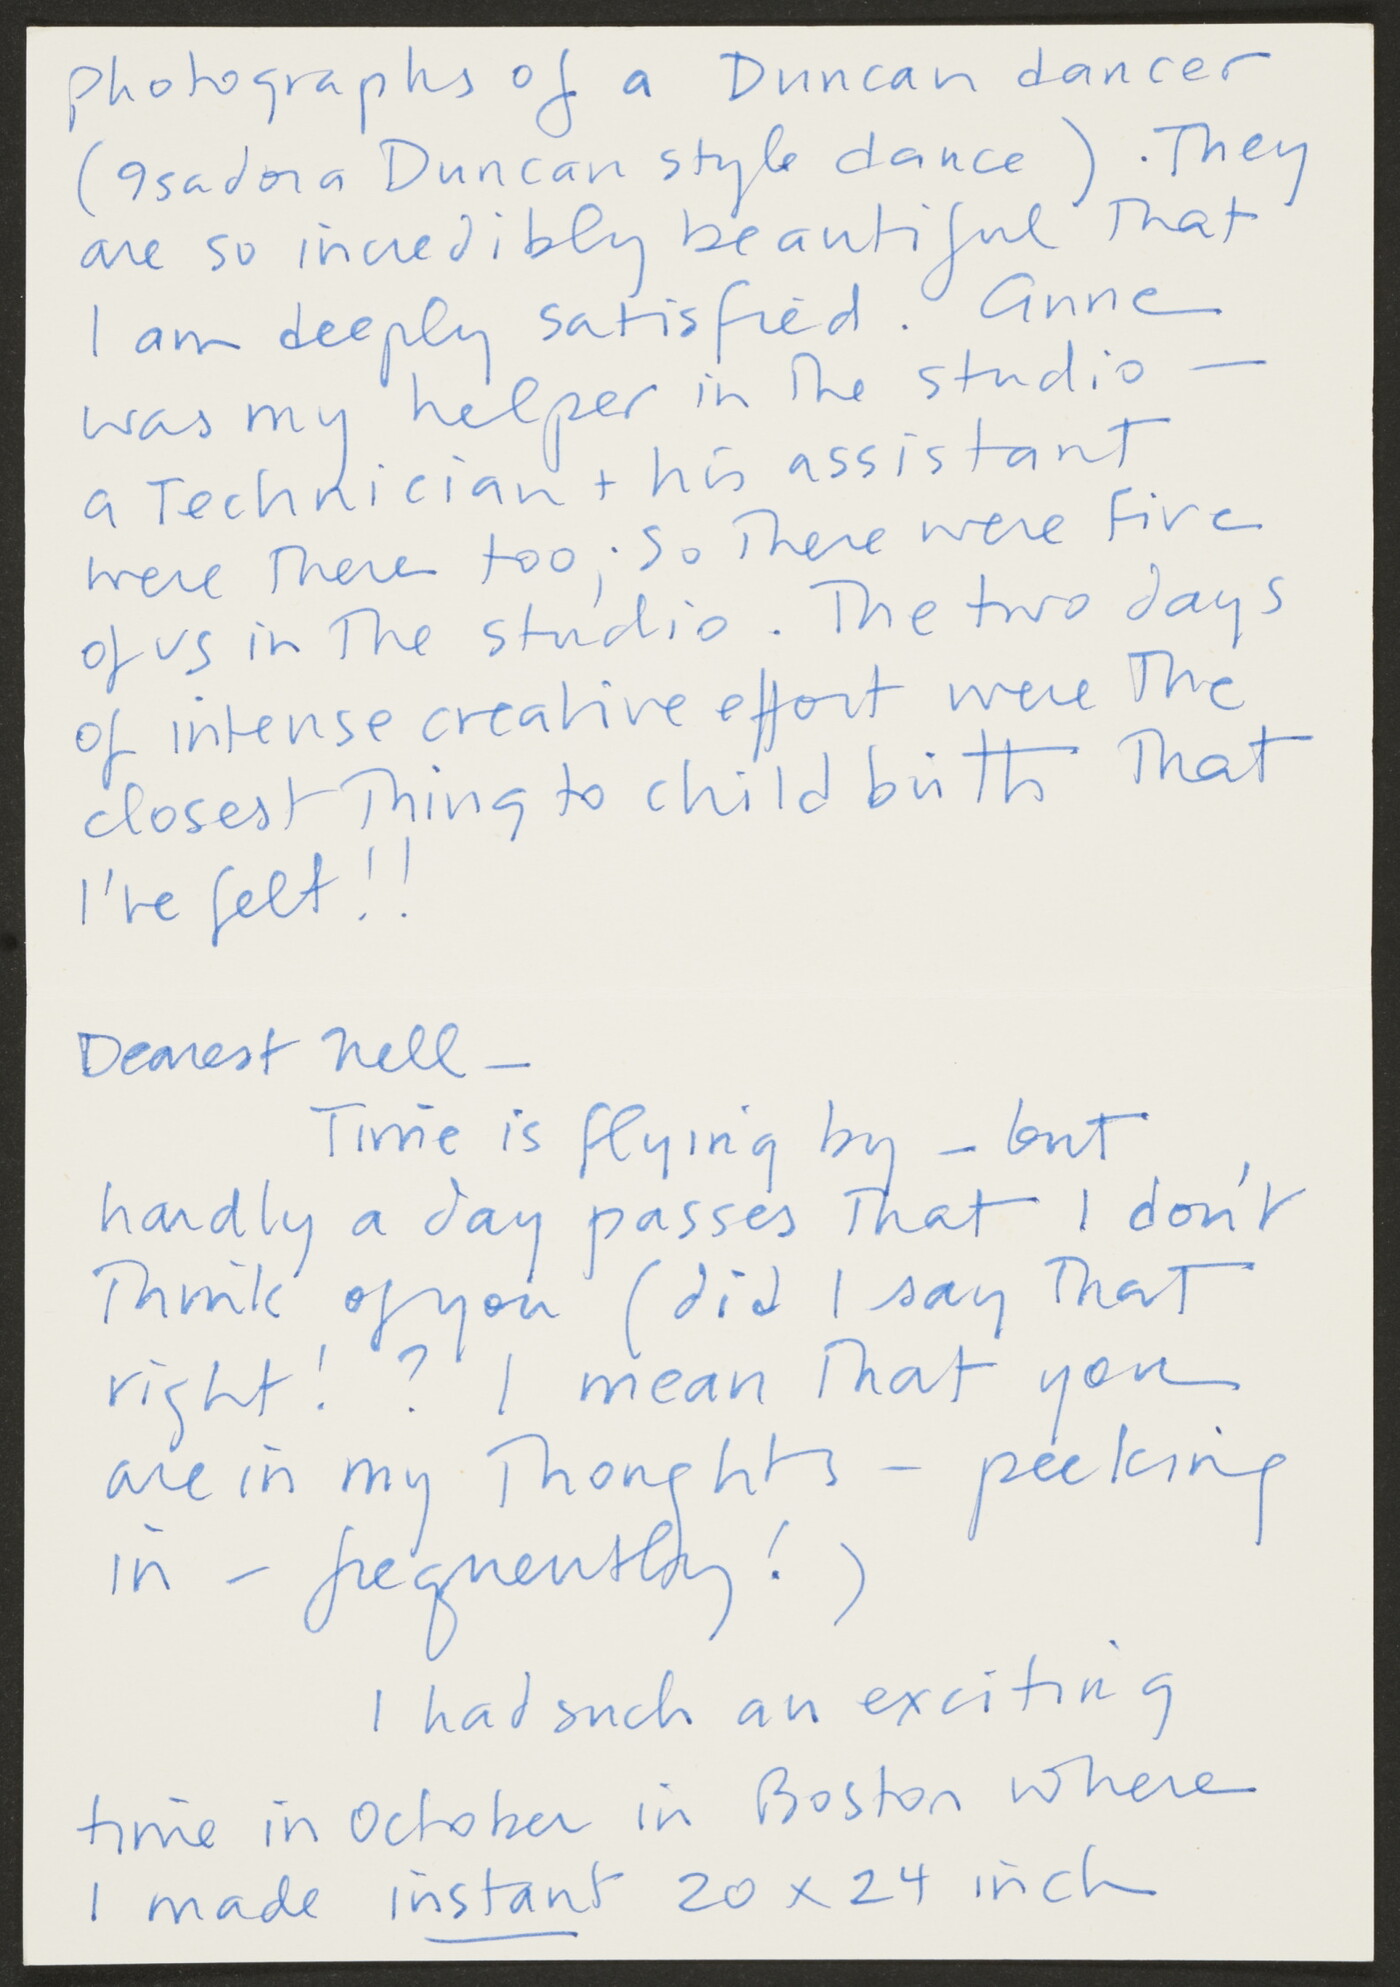 photographs of a Duncan dancer
(Isadora Duncan style dance). They
are so incredibly beautiful that
I am deeply satisfied. Anne
was my helper in the studio —
a Technician + his assistant
were there too; so there were five
of us in the studio. The two days
of intense creative effort were the
closest thing to child birth that
I've felt!!
Dearest Nell —
Time is flying by — but
hardly a day passes that I don't
think of you (did I say that
right!? I mean that you
are in my thoughts — peeking
in — frequently!)
I had such an exciting
time in October in Boston where
I made instant 20 x 24 inch